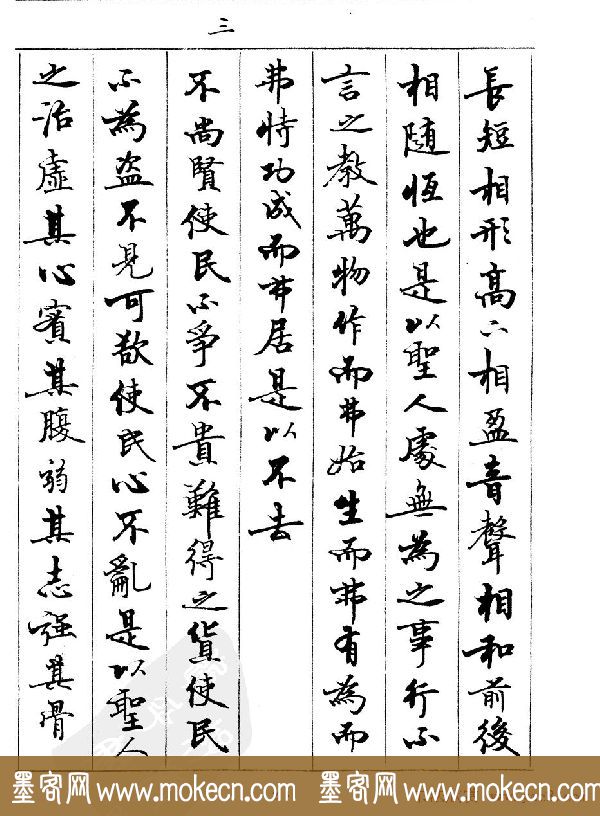 三
長短相形高下相盈音聲相和前後
相隨恆也是以聖人處無為之事行不
言之教萬物作而弗始生而弗有為而
弗恃功成而弗居是以不去
不尚賢使民不爭不貴難得之貨使民
不為盜不見可欲使民心不亂是以聖人
之治虛其心實其腹弱其志强其骨
墨客网 www.mokecn.com 墨客网 www.mokecn.com